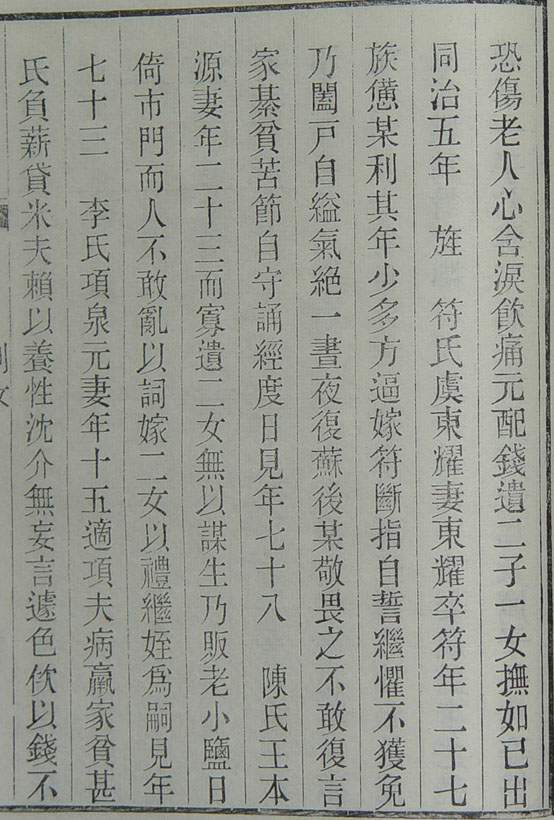 恐傷老人心含淚飲痛元配錢遺二子一女撫如已出
同治五年　旌　符氏虞東耀妻東耀卒符年二十七
族憊某利其年少多方逼嫁符斷指自誓繼懼不獲免
乃闔戸自縊氣絕一晝夜復蘇後某敬畏之不敢復言
家綦貧苦節自守誦經度日見年七十八　陳氏王本
源妻年二十三而寡遺二女無以謀生乃販老小鹽日
倚市門而人不敢亂以詞嫁二女以禮繼姪爲嗣見年
七十三　李氏項泉元妻年十五適項夫病羸家貧甚
氏負薪貸米夫賴以養性沈介無妄言遽色佽以錢不
列女